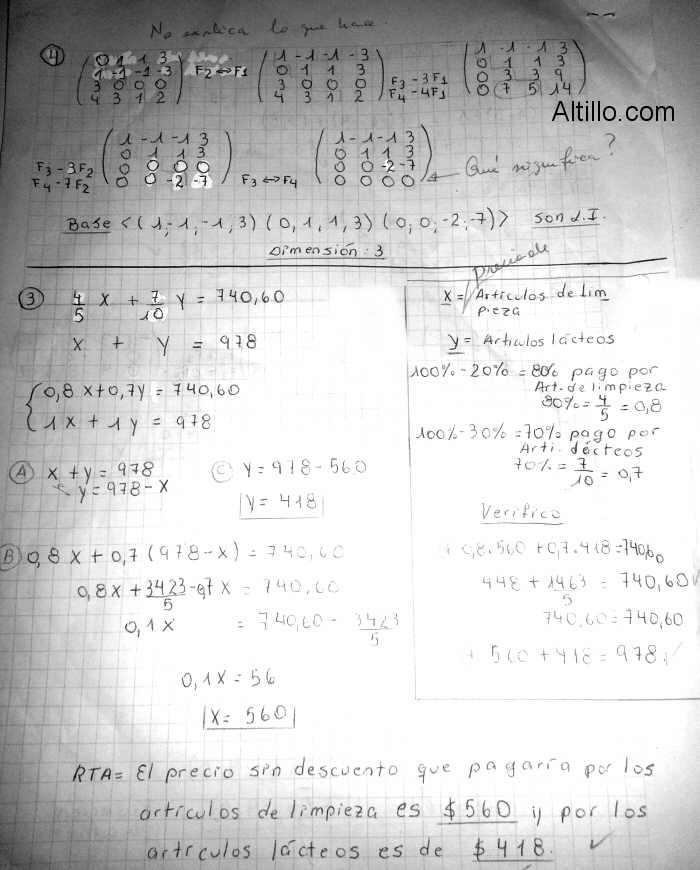 No explica lo que hace.
4 ( 0 1 1 3 ) ( 1 -1 -1 -3 ) ( 1 -1 -1 3 )
( 1 -1 -1 -3 ) F2 ↔ F1 ( 0 1 1 3 ) ( 0 1 1 3 )
( 3 0 0 0 ) ( 3 0 0 0 ) F3 - 3F1 ( 0 3 3 9 )
( 4 3 1 2 ) ( 4 3 1 2 ) F4 - 4F1 ( 0 7 5 14 )
Altillo.com
( 1 -1 -1 3 ) ( 1 -1 -1 3 )
( 0 1 1 3 ) ( 0 1 1 3 )
F3 - 3F2 ( 0 0 0 0 ) ( 0 0 -2 -7 )
F4 - 7F2 ( 0 0 -2 -7 ) F3 ↔ F4 ( 0 0 0 0 ) ← Qué significa?
Base < (1;-1,-1,3) (0,1,1,3) (0,0,-2,-7) > son L.I.
Dimensión: 3
3 4/5 x + 7/10 y = 740,60
x + y = 978
{ 0,8x + 0,7y = 740,60
1x + 1y = 978
A x + y = 978
y = 978 - x
B 0,8x + 0,7 (978 - x) = 740,60
0,8x + 3423/5 - 0,7x = 740,60
0,1x = 740,60 - 3423/5
0,1x = 56
x = 560
C y = 978 - 560
y = 418
precio de
x = Artículos de lim
pieza
y = Artículos lácteos
100% - 20% = 80% pago por
Art. de limpieza
80% = 4/5 = 0,8
100% - 30% = 70% pago por
Arti. lácteos
70% = 7/10 = 0,7
Verifico
0,8.560 + 0,7.418 = 740,60
448 + 1463/5 = 740,60 ✓
740,60 = 740,60
560 + 418 = 978 ✓
RTA = El precio sin descuento que pagaría por los
artículos de limpieza es $560 y por los
artículos lácteos es de $418. ✓